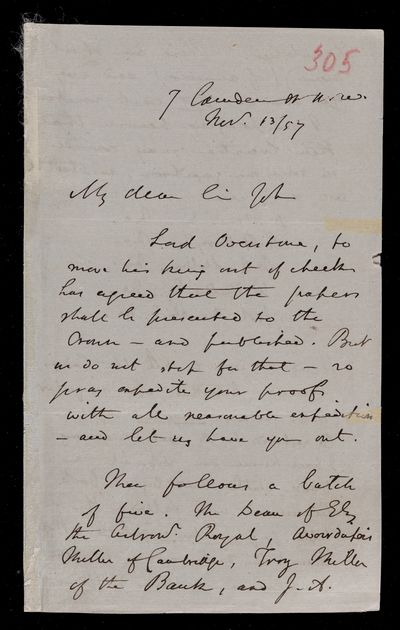 305
7 Camden St N.W.
Nov. 13/57
My dear Sir John
Lord Overstone, to
move his king out of check
has agreed that the papers
shall be presented to the
Crown – and published. But
we do not stop for that – so
pray expedite your proofs
with all reasonable expedition
– and let us have you out.
Then follows a batch
of five. The Dean of Ely,
the Astronr. Royal, Avoirdupois
Miller of Cambridge, Troy Miller
of the Bank, and J. A.